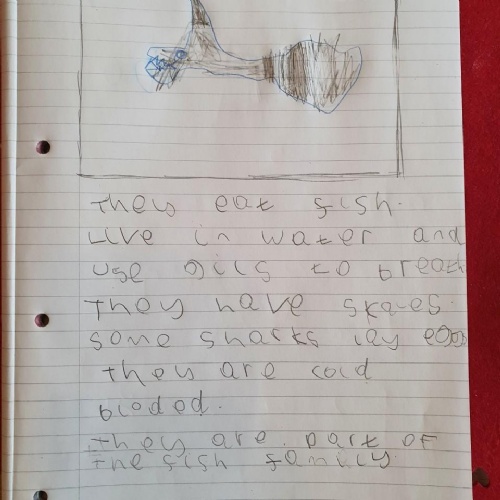 they eat fish.
Live in water and
use gills to breath
They have skales.
some sharks lay eggs
they are cold
bloded.
they are part of
the fish family.